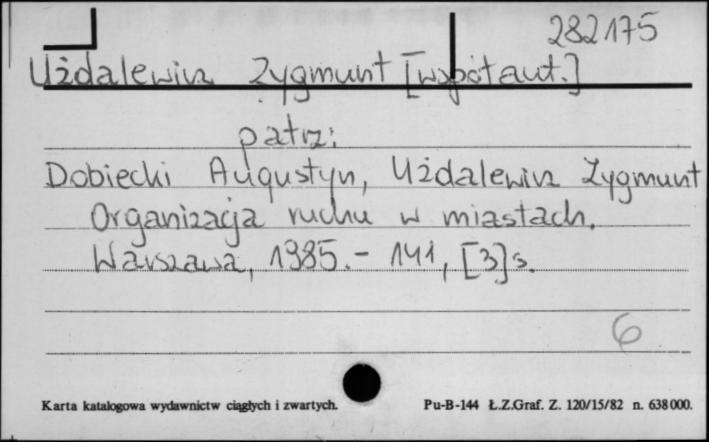 282175
Użdalewicz Zygmunt [współaut.]
patrz:
Dobiecki Augustyn, Użdalewicz Zygmunt
Organizacja ruchu w miastach.
Warszawa, 1985.- 141, [3]s.
6
Karta katalogowa wydawnictw ciągłych i zwartych. Pu-B-144 Ł.Z.Graf. Z. 120/15/82 n. 638000.